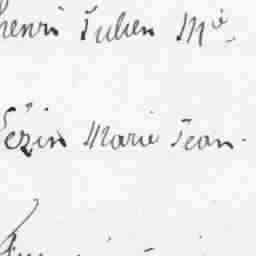 henri Julien Mie
Pézin Marie Jean.